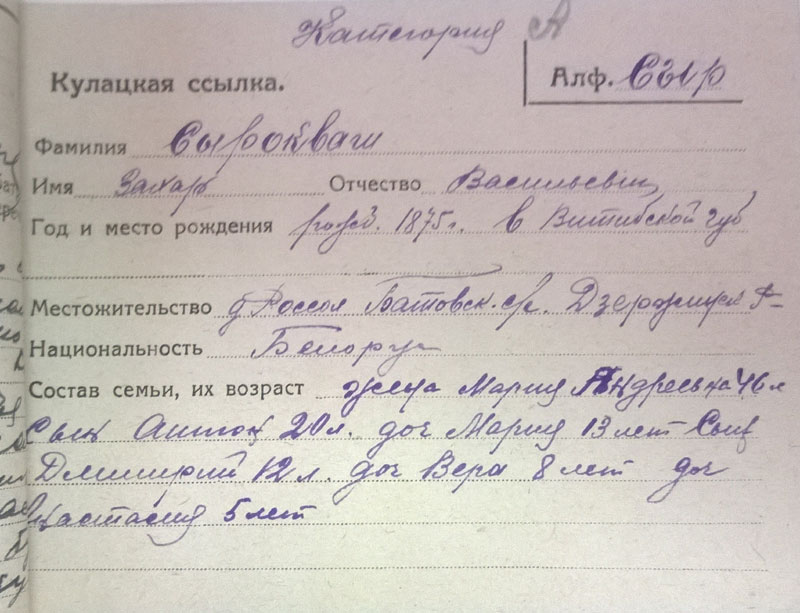 Категория А
Кулацкая ссылка.
Алф. Сыр
Фамилия Сырокваш
Имя Захар Отчество Васильевич
Год и место рождения рожд. 1875г. в Витибской губ
Местожительство д Россол Батовск. с/с. Дзержинск Р-
Национальность Белорус
Состав семьи, их возраст жена Мария Андреевна 46 л
Сын Антон 20 л. доч Мария 13 лет Сын
Дмитрий 12 л. доч Вера 8 лет доч
Настасия 5 лет